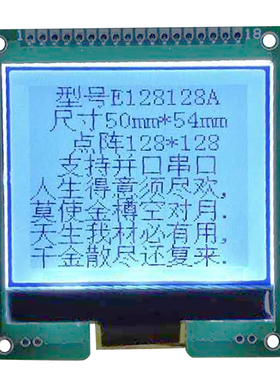 1 18
型号E128128A
尺寸50mm*54mm
点阵128*128
支持并口串口
人生得意须尽欢,
莫使金樽空对月.
天生我材必有用,
千金散尽还复来.